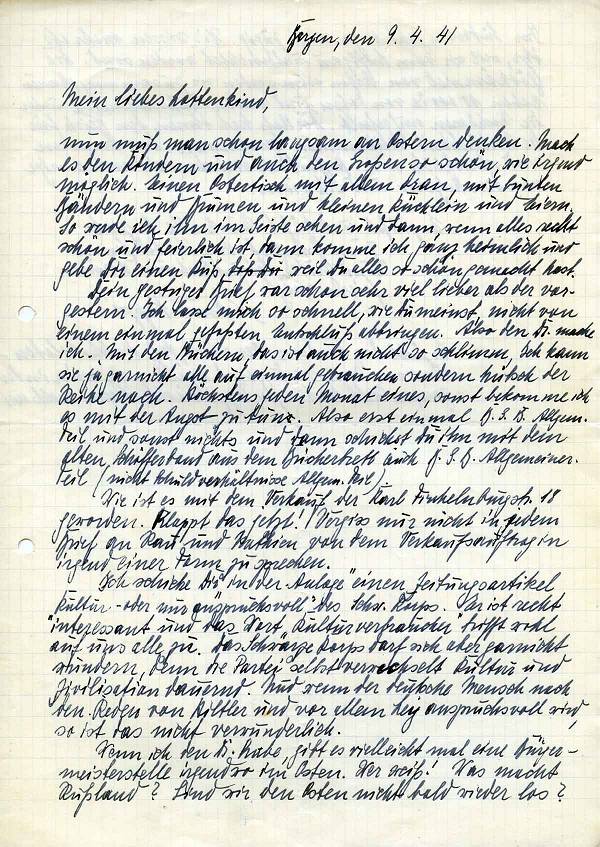 Bergen, den 9. 4. 41
Mein liebes Lottenkind,
nun muß man schon langsam an Ostern denken. Mach
es den Kindern und auch den Großen so schön, wie irgend
möglich. Einen Ostertisch mit allem dran, mit bunten
Bändern und Blumen und kleinen Küchlein und Eiern.
So werde ich ihn im Geiste sehen und dann, wenn alles recht
schön und feierlich ist, dann komme ich ganz heimlich und
gebe Dir einen Kuß, weil Du alles so schön gemacht hast.
Dein gestriger Brief war schon sehr viel lieber als der vor-
gestern. Ich lasse mich so schnell, wie Du meinst, nicht von
einem einmal gefaßten Entschluß abbringen. Also den mache
ich. Mit den Büchern, das ist auch nicht so schlimm, Ich kann
sie ja garnicht alle auf einmal gebrauchen sondern hübsch der
Reihe nach. Höchstens jeden Monat eines, sonst bekomme ich
es mit der Angst zu tun. Also erst einmal B.G.B. Allgem.
Teil und sonst nichts und dann schickst Du ihn mit dem
alten Schäfferband aus dem Bücherbrett auch B.G.B. Allgemeiner
Teil / nicht Schuldverhältnisse Allgem. Teil /
Wie ist es mit dem Verkauf der Karl 18
geworden. Klappt das jetzt! Vergiss nur nicht in jedem
Brief an und von dem Verkaufsauftrag in
irgend einer Form zu sprechen.
Ich schicke Dir "in der Anlage" einen Zeitungsartikel
Kultur - oder nur anspruchsvoll" des Schw. Korps. Er ist recht
interessant und das Wort "Kulturverbraucher" trifft wohl
auf uns alle zu. Das Schwarze Korps darf sich aber garnicht
wundern, denn die Partei selbst verwechselt Kultur und
Zivilisation dauernd. Und wenn der deutsche Mensch nach
den Reden von Hitler und vor allem Ley anspruchsvoll wird,
so ist das nicht verwunderlich.
Wenn ich den habe, gibt es vielleicht mal eine Bürger-
meisterstelle irgendwo im Osten. Wer weiß! Was macht
Rußland? Sind wir den Osten nicht bald wieder los?